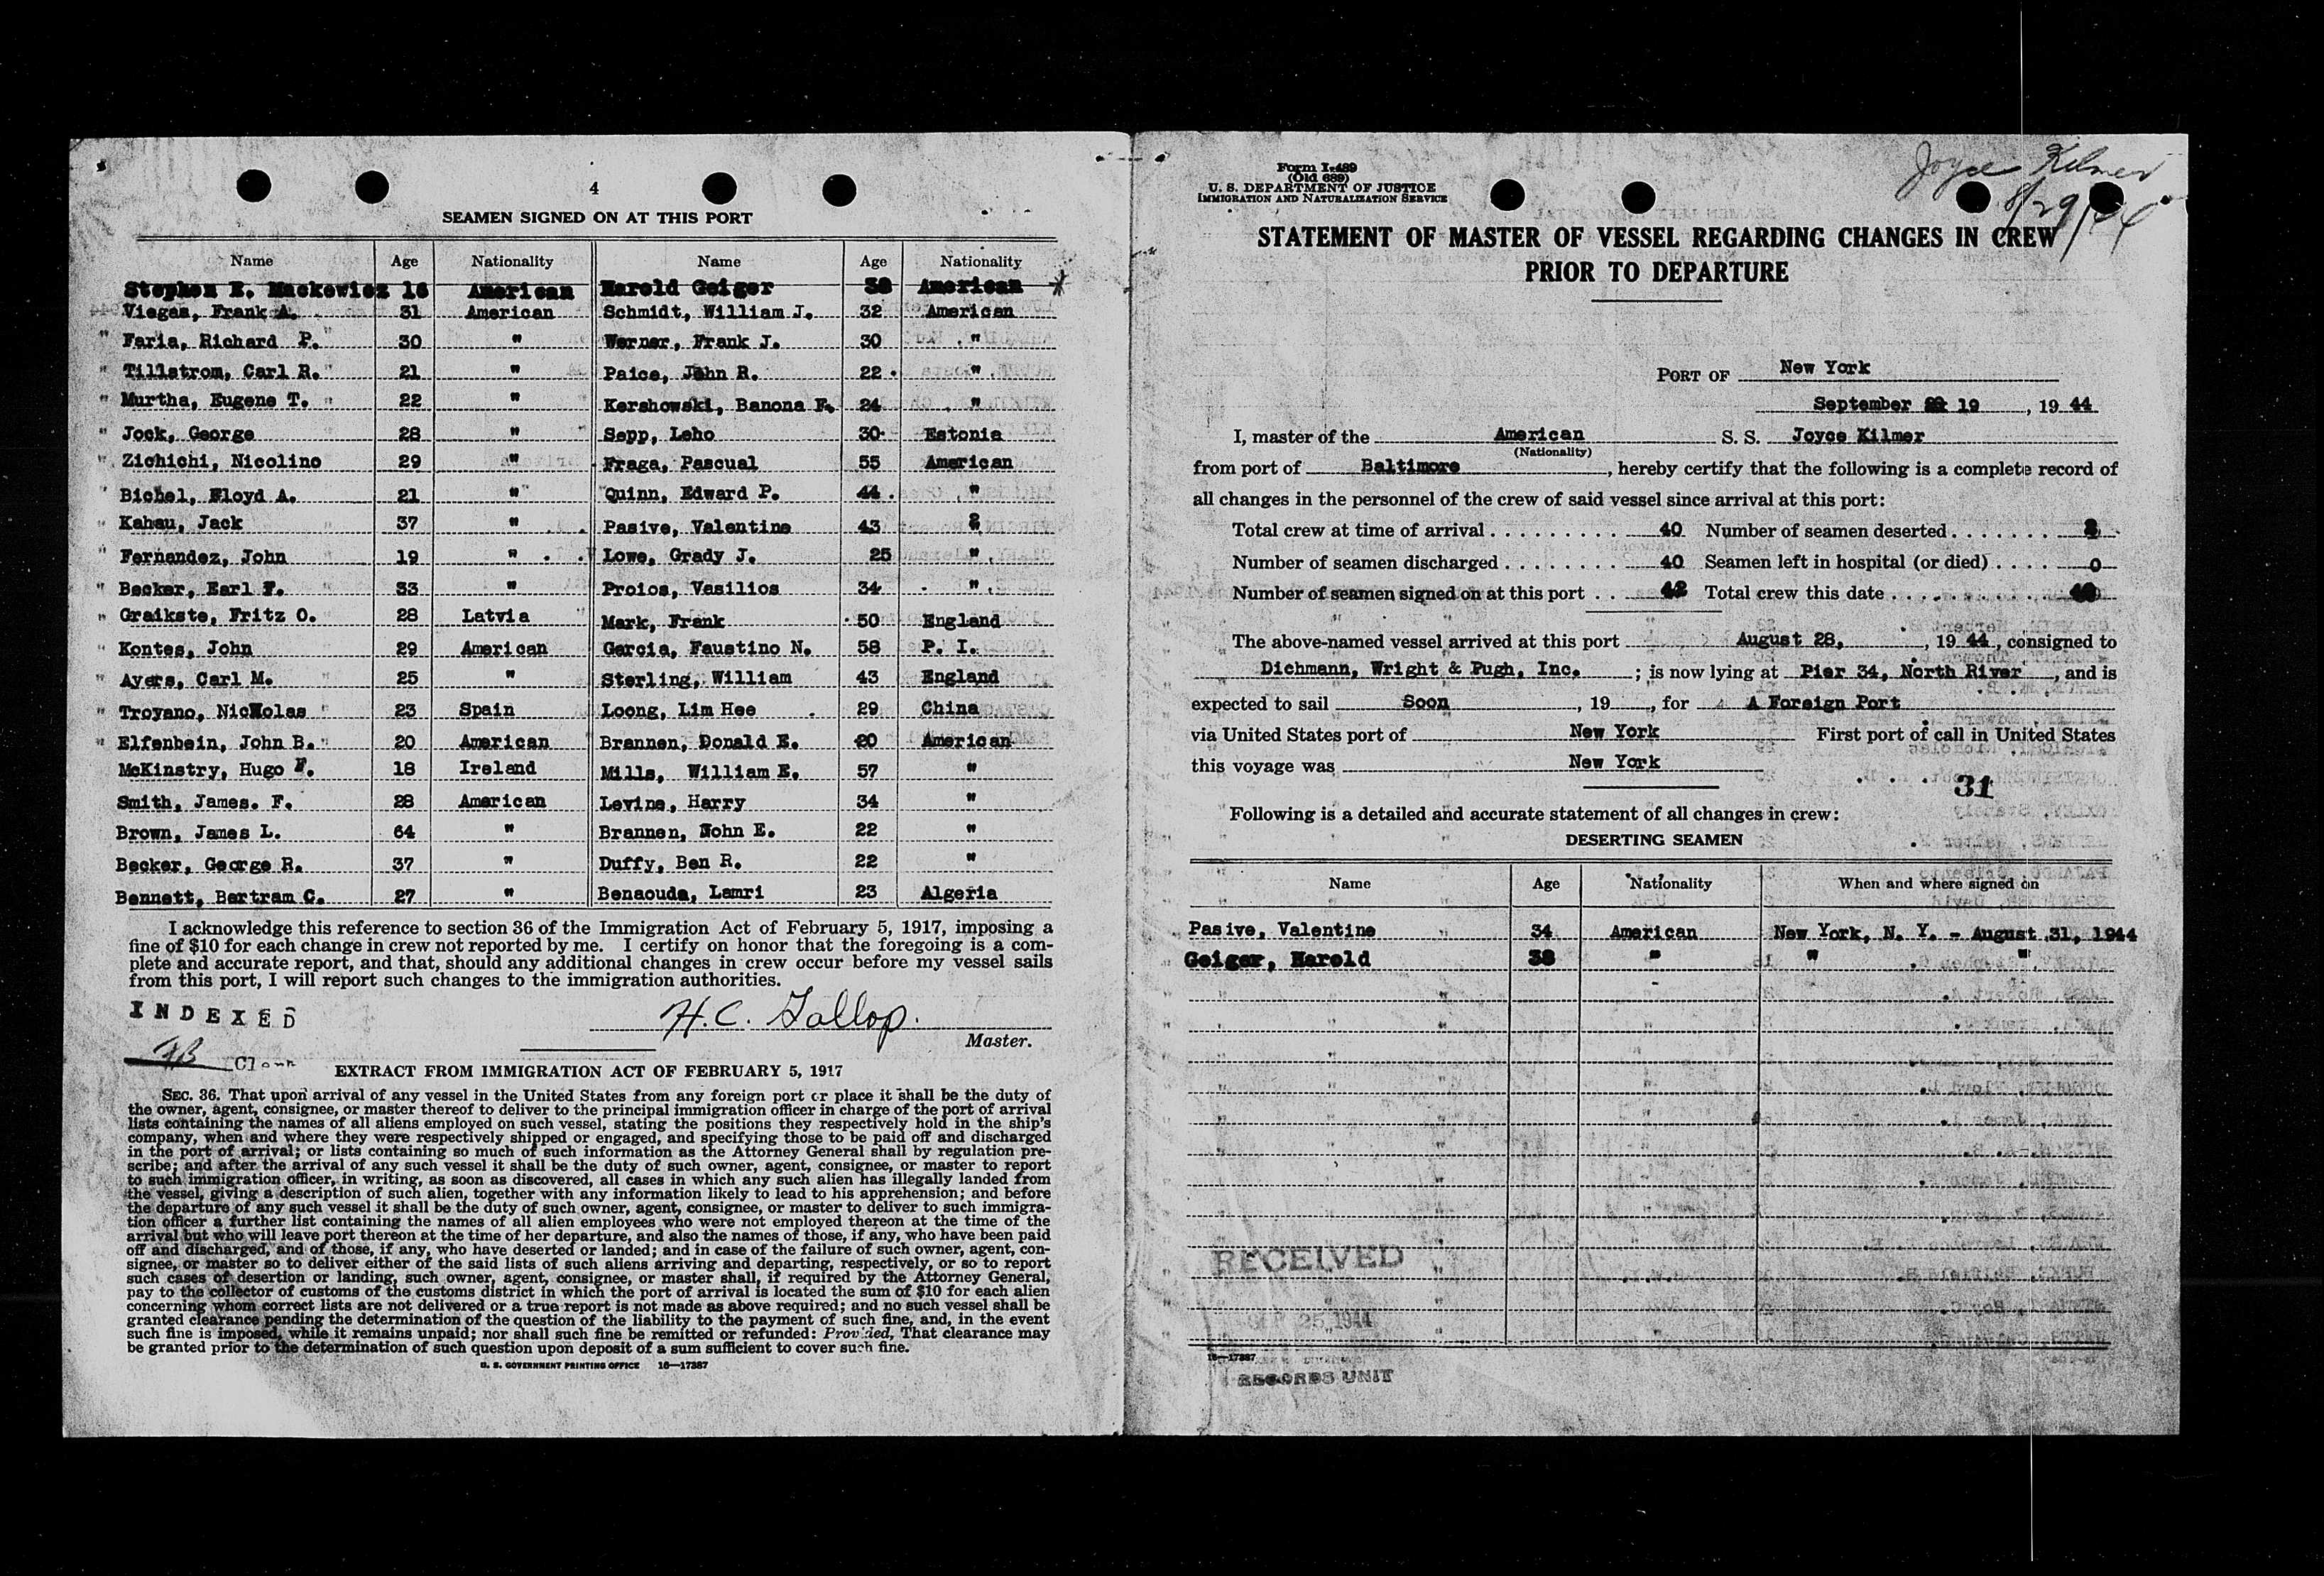 4
SEAMEN SIGNED ON AT THIS PORT
Name Age Nationality Name Age Nationality
Stephen E. Mackewicz 16 American Harold Geiger 38 American
Viegas, Frank A. 31 American Schmidt, William J. 32 American
" Faria, Richard P. " 30 " Werner, Frank J. 30 "
" Tillstrom, Carl R. " 21 " Paice, John R. 22 "
" Murtha, Eugene T. " 22 " Kershowski, Banona F. 24 "
" Jock, George 28 " Sepp, Leho 30 Estonia
" Zichichi, Nicolino 29 " Fraga, Pascual 55 American
' Bichel, Floyd A. 21 " Quinn, Edward P. 44 "
" Kahau, Jack 37 " Pasive, Valentine 43 "
" Fernandez, John 19 " Lowe, Grady J. 25 "
" Becker, Earl F. 33 " Proios, Vasilios 34 "
" Graikste, Fritz O. 28 Latvia Mark, Frank 50 England
" Kontes, John 29 American Garcia, Faustino N. 58 P. I.
" Ayers, Carl M. 25 " Sterling, William 43 England
" Troyano, Nicholas " 23 Spain Loong, Lim Hee 29 China
" Elfenbein, John B. " 20 American Brannen, Donald E. 20 American
McKinstry, Hugo F. 18 Ireland Mills, William E. 57 "
Smith, James. F. 28 American Levine, Harry 34 "
Brown, James L. 64 " Brannen, John E. 22 "
Becker, George R. 37 " Duffy, Ben R. 22 "
Bennett, Bertram C. 27 " Benaouda, Lamri 23 Algeria
I acknowledge this reference to section 36 of the Immigration Act of February 5, 1917, imposing a
fine of $10 for each change in crew not reported by me. I certify on honor that the foregoing is a com-
plete and accurate report, and that, should any additional changes in crew occur before my vessel sails
from this port, I will report such changes to the immigration authorities.
INDEXED
H. C. Gallop.
Master.
EXTRACT FROM IMMIGRATION ACT OF FEBRUARY 5, 1917
SEC. 36. That upon arrival of any vessel in the United States from any foreign port or place it shall be the duty of
the owner, agent, consignee, or master thereof to deliver to the principal immigration officer in charge of the port of arrival
lists containing the names of all aliens employed on such vessel, stating the positions they respectively hold in the ship's
company, when and where they were respectively shipped or engaged, and specifying those to be paid off and discharged
in the port of arrival; or lists containing so much of such information as the Attorney General shall by regulation pre-
scribe; and after the arrival of any such vessel it shall be the duty of such owner, agent, consignee, or master to report
to such immigration officer, in writing, as soon as discovered, all cases in which any such alien has illegally landed from
the vessel, giving a description of such alien, together with any information likely to lead to his apprehension; and before
the departure of any such vessel it shall be the duty of such owner, agent, consignee, or master to deliver to such immigra-
tion officer a further list containing the names of all alien employees who were not employed thereon at the time of the
arrival but who will leave port thereon at the time of her departure, and also the names of those, if any, who have been paid
off and discharged, and of those, if any, who have deserted or landed; and in case of the failure of such owner, agent, con-
signee, or master so to deliver either of the said lists of such aliens arriving and departing, respectively, or so to report
such cases of desertion or landing, such owner, agent, consignee, or master shall, if required by the Attorney General,
pay to the collector of customs of the customs district in which the port of arrival is located the sum of $10 for each alien
concerning whom correct lists are not delivered or a true report is not made as above required; and no such vessel shall be
granted clearance pending the determination of the question of the liability to the payment of such fine, and, in the event
such fine is imposed, while it remains unpaid; nor shall such fine be remitted or refunded: Provided, That clearance may
be granted prior to the determination of such question upon deposit of a sum sufficient to cover such fine.
U. S. GOVERNMENT PRINTING OFFICE 16—17387
Joyce Kilmer
8/29/44
Form I-489
(Old 689)
U. S. DEPARTMENT OF JUSTICE
IMMIGRATION AND NATURALIZATION SERVICE
STATEMENT OF MASTER OF VESSEL REGARDING CHANGES IN CREW
PRIOR TO DEPARTURE
PORT OF New York
September 19, 1944
I, master of the American S. S. Joyce Kilmer
(Nationality)
from port of Baltimore, hereby certify that the following is a complete record of
all changes in the personnel of the crew of said vessel since arrival at this port:
Total crew at time of arrival 40 Number of seamen deserted 2
Number of seamen discharged 40 Seamen left in hospital (or died) 0
Number of seamen signed on at this port 42 Total crew this date 40
The above-named vessel arrived at this port August 28, 1944, consigned to
Dichmann, Wright & Pugh, Inc. ; is now lying at Pier 34, North River, and is
expected to sail Soon, 19 , for A Foreign Port
via United States port of New York First port of call in United States
this voyage was New York
31
Following is a detailed and accurate statement of all changes in crew:
DESERTING SEAMEN
Name Age Nationality When and where signed on
Pasive, Valentine 34 American New York, N. Y. - August 31, 1944
Geiger, Harold 38 " " "
RECEIVED
25, 1944
16—17387
RECORDS UNIT